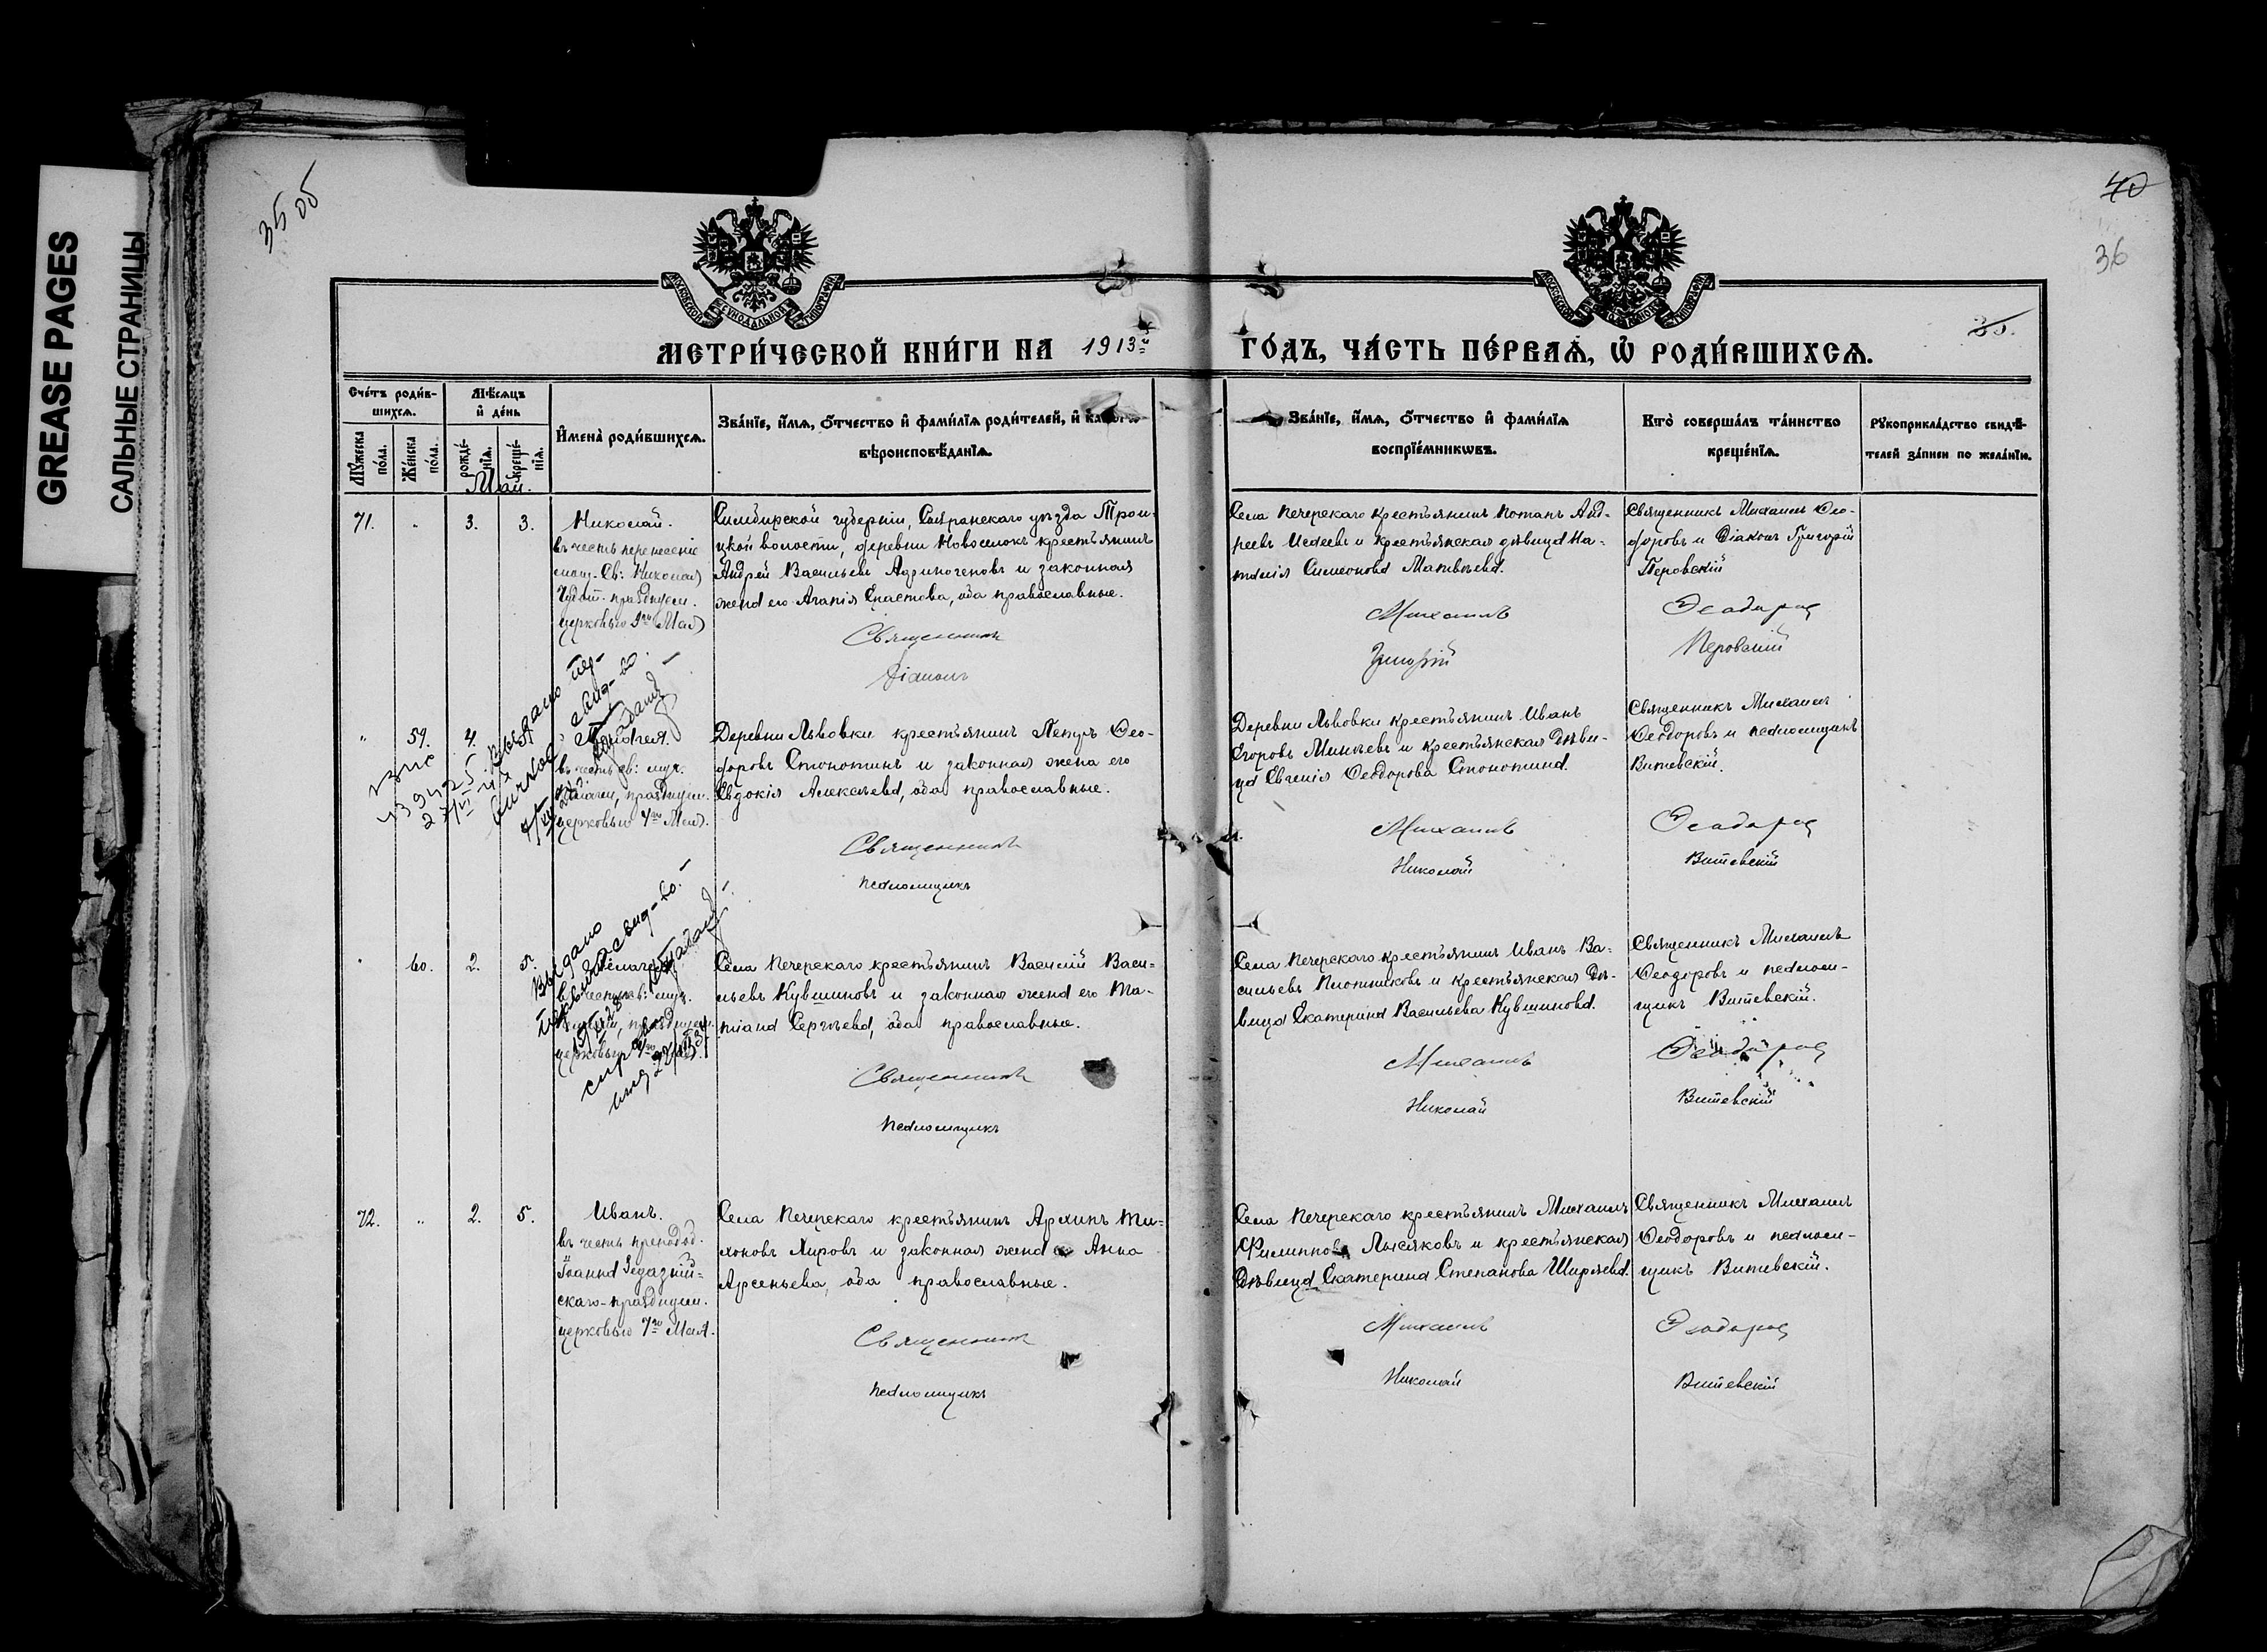 GREASE PAGES
САЛЬНЫЕ СТРАНИЦЫ
35 об
40
36
35.
МОСКОВСКОЙ СѴНОДАЛЬНОЙ ТИПОГРАФІИ
МОСКОВСКОЙ СѴНОДАЛЬНОЙ ТИПОГРАФІИ
МЕТРИ́ЧЕСКОЙ КНИ́ГИ НА 1913й ГО́ДЪ, ЧА́СТЬ ПЕ́РВАѦ, Ѡ РОДИ́ВШИХСѦ.
Сче́тъ роди́в-
шихсѧ.
Мꙋжеска по́ла.
Же́нска по́ла.
Мѣ́сѧцъ
и де́нь
рожде́-
нїѧ.
креще́-
нїѧ.
Имена̀ роди́вшихсѧ.
Зва́нїе, и́мѧ, о́тчество и фами́лїѧ роди́телей, и како́гѡ
вѣроисповѣ́данїѧ.
Зва́нїе, и́мѧ, о́тчество и фами́лїѧ
воспрїе́мникѡвъ.
Кто̀ соверша́лъ та́инство
креще́нїѧ.
Рꙋкоприкла́дство свидѣ́-
телей за́писи по жела́нїю.
Май.
71. " 3. 3.
Николай.
въ честь перенесенія
мощ. Св: Николая
Чудот. празднуем.
церковью 9го Мая
Симбирской губерніи, Сызранскаго уѣзда Трои-
цкой волости, деревни Новоселокъ крестьянинъ
Андрей Васильевъ и законная
жена его Агапія оба православные.
Священникъ
Діаконъ
Села Печерскаго крестьянинъ Потапъ Анд-
реевъ и крестьянская дѣвица На-
талія Симеонова Матвѣева.
Михаилъ
Григорій
Священникъ Михаилъ Ѳео-
доровъ и Діаконъ Григорій
Перовскій
Ѳеодоровъ
Перовскій
" 59. 4.
Пелагея.
въ честь св: муч.
Пелагеи, празднуем.
церковью 4го Мая.
Выдано
свид-во.
Деревни Львовки крестьянинъ Петръ Ѳео-
доровъ Стопотинъ и законная жена его
Евдокія Алексѣева, оба православные.
Священникъ
псаломщикъ
Деревни Львовки крестьянинъ Иванъ
Егоровъ Минѣевъ и крестьянская дѣви-
ца Евгенія Ѳеодорова Стопотина.
Михаилъ
Николай
Священникъ Михаилъ
Ѳеодоровъ и псаломщикъ
Витевскій.
Ѳеодоровъ
Витевскій
" 60. 2. 5.
Пелагея
въ честь св: муч.
Пелагеи, празднуем.
церковью 4го Мая.
Выдано
свид-во.
Села Печерскаго крестьянинъ Василій Васи-
льевъ Кувшиновъ и законная жена его Та-
тіана Сергѣева, оба православные.
Священникъ
псаломщикъ
Села Печерскаго крестьянинъ Иванъ Ва-
сильевъ Плотниковъ и крестьянская дѣ-
вица Екатерина Васильева Кувшинова.
Михаилъ
Николай
Священникъ Михаилъ
Ѳеодоровъ и псалом-
щикъ Витевскій.
Ѳеодоровъ
Витевскій
72. " 2. 5.
Иванъ.
въ честь преподоб.
Іоанна Зедазній-
скаго-празднуем.
церковью 7го Мая.
Села Печерскаго крестьянинъ Архипъ Ти-
хоновъ Жировъ и законная жена Анна
Арсеньева, оба православные.
Священникъ
псаломщикъ
Села Печерскаго крестьянинъ Михаилъ
Филипповъ Лысяковъ и крестьянская
дѣвица Екатерина Степанова Ширяева.
Михаилъ
Николай
Священникъ Михаилъ
Ѳеодоровъ и псалом-
щикъ Витевскій.
Ѳеодоровъ
Витевскій